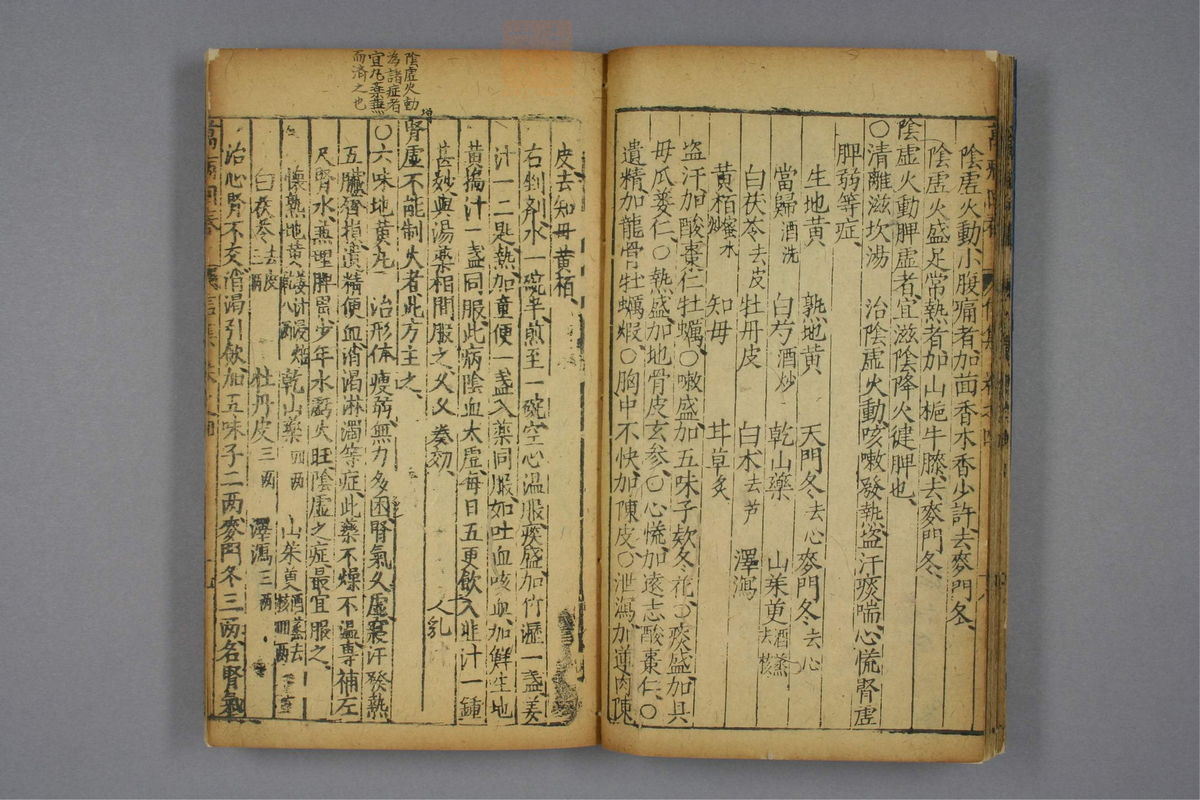 陰虛火動小腹痛者加茴香木香少許去麥門冬
陰虛火盛足常熱者加山梔牛膝去麥門冬
陰虛火動脾虛者宜滋陰降火健脾也
〇清離滋坎湯　治陰虛火動咳嗽發熱盜汗痰喘心慌腎虛
脾弱等症
生地黃　熟地黃　天門冬去心　麥門冬去心
當歸酒洗　白芍酒炒　乾山藥　山茱萸酒蒸去核
白茯苓去皮　牡丹皮　白朮去芦　澤瀉
黃栢蜜水炒　知母　甘草炙
盜汗加酸棗仁牡蠣〇嗽盛加五味子款冬花〇痰盛加貝
母瓜蔞仁〇熱盛加地骨皮玄參〇心慌加遠志酸棗仁〇
遺精加龍骨牡蠣煆〇胸中不快加陳皮〇泄瀉加蓮肉陳
皮去知母黃栢
右剉劑水一碗半煎至一碗空心溫服痰盛加竹瀝一盞姜
汁一二匙熱加童便一盞入藥同服如吐血咳血加鮮生地
黃搗汁一盞同服此病陰血太虛每日五更飲人乳韭汁一鍾
甚妙與湯藥相間服之久久奏効
腎虛不能制火者此方主之
陰虛火動
為諸症者
宜
而濟之也
〇六味地黃丸　治形体瘦弱無力多困腎氣久虛寢汗發熱
五臟齊損遺精便血消渴淋濁等症此藥不燥不溫專補左
尺腎水兼理脾胃少年水虧火旺陰虛之症最宜服之
懷熟地黃　乾山藥四兩　山茱萸酒蒸去核四兩
白茯苓去皮三兩　牡丹皮三兩　澤瀉三兩
治心腎不交消渴引飲加五味子二兩麥門冬三兩名腎氣